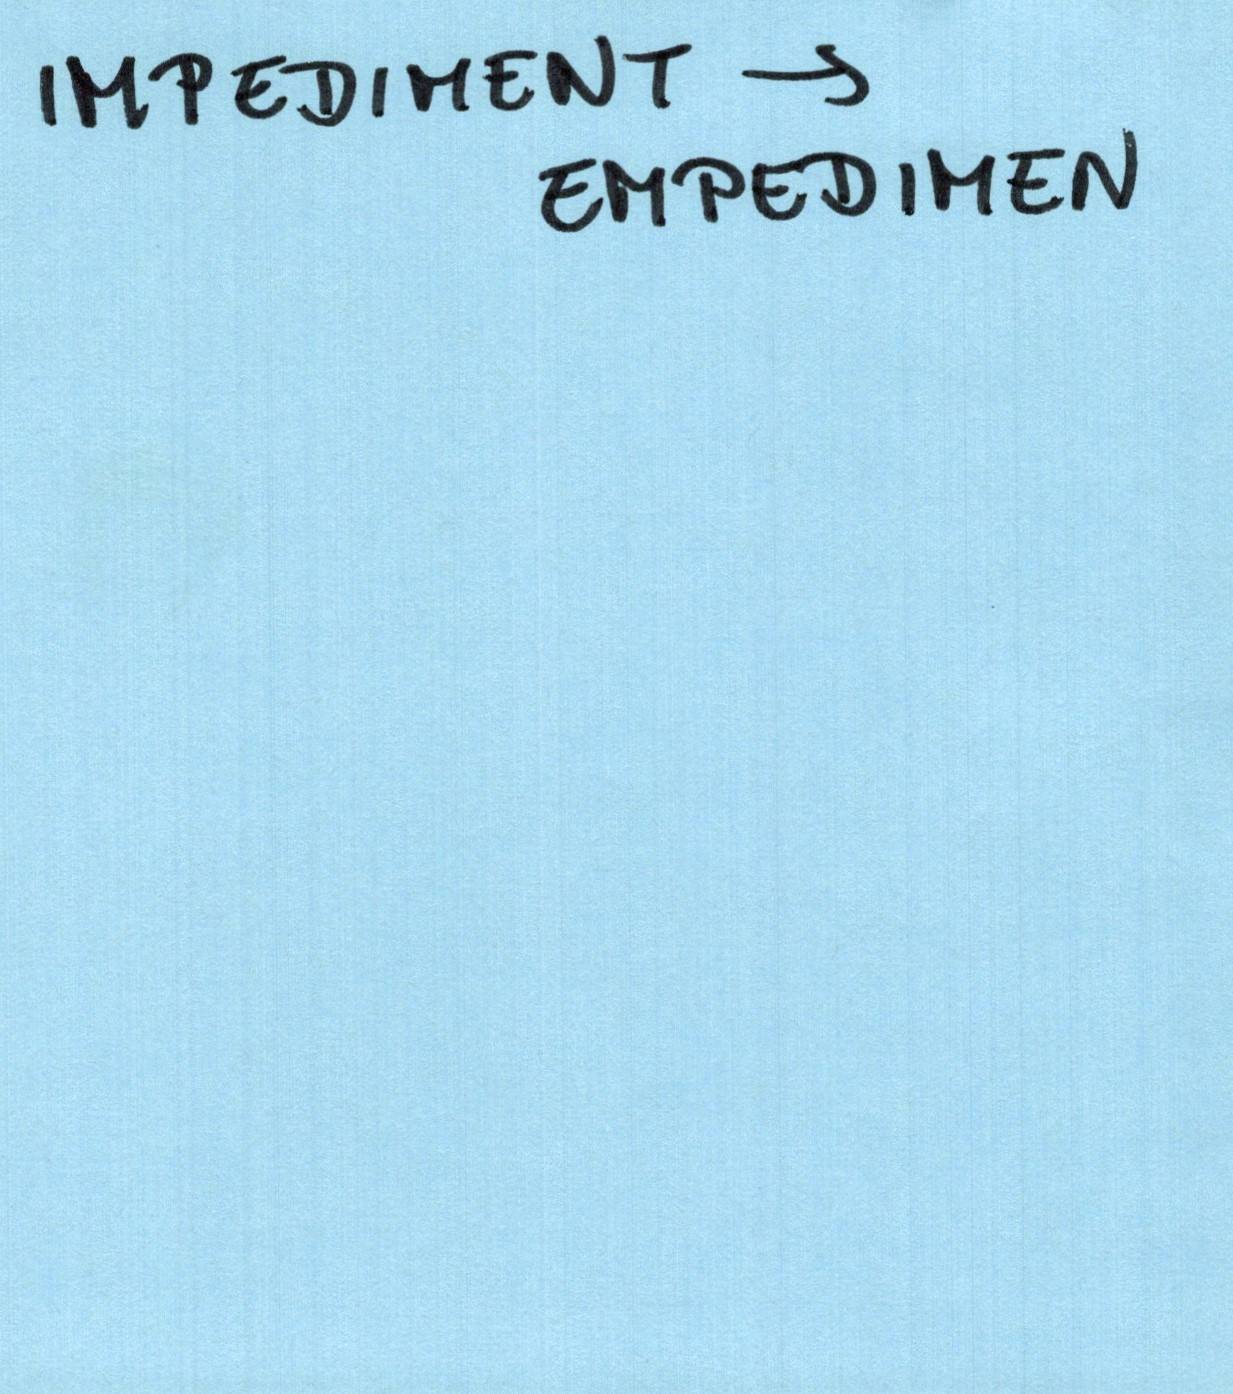 IMPEDIMENT →
EMPEDIMEN